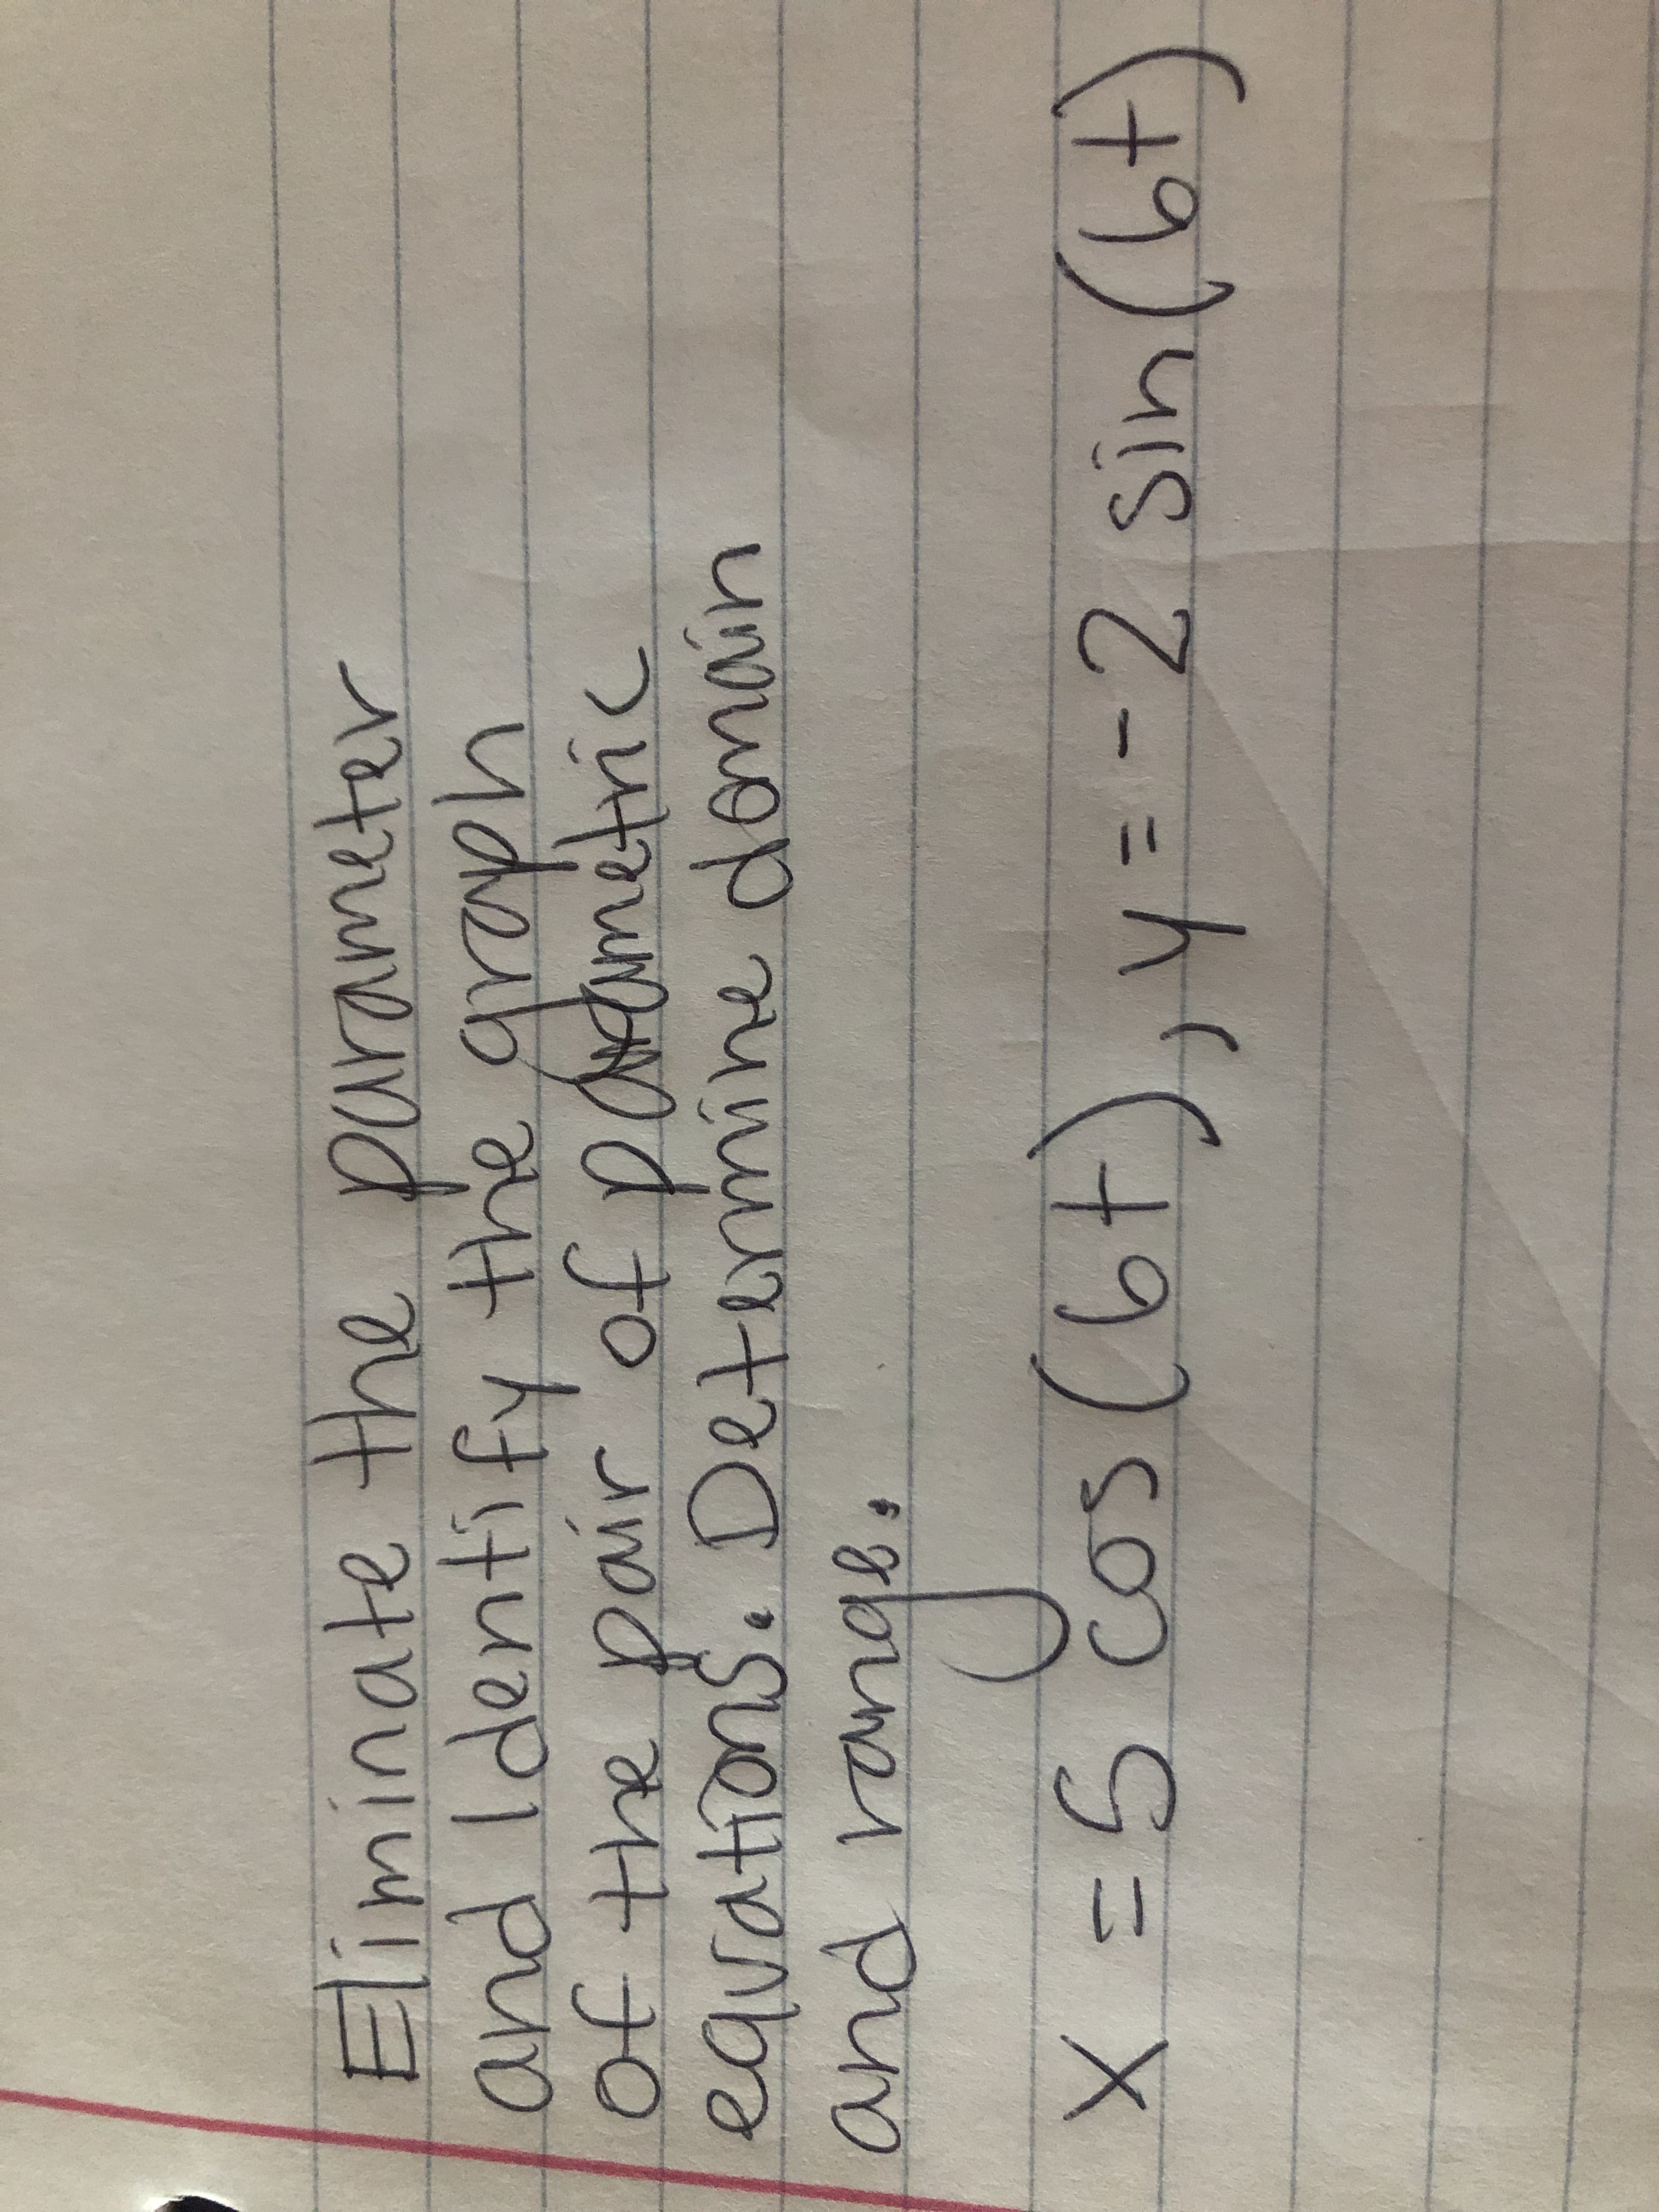 Eliminate the parameter
and Identify the graph
of the pair of parametric
equations. Determine domain
and range.
x = 5 cos (6t), y = -2 sin (6t)